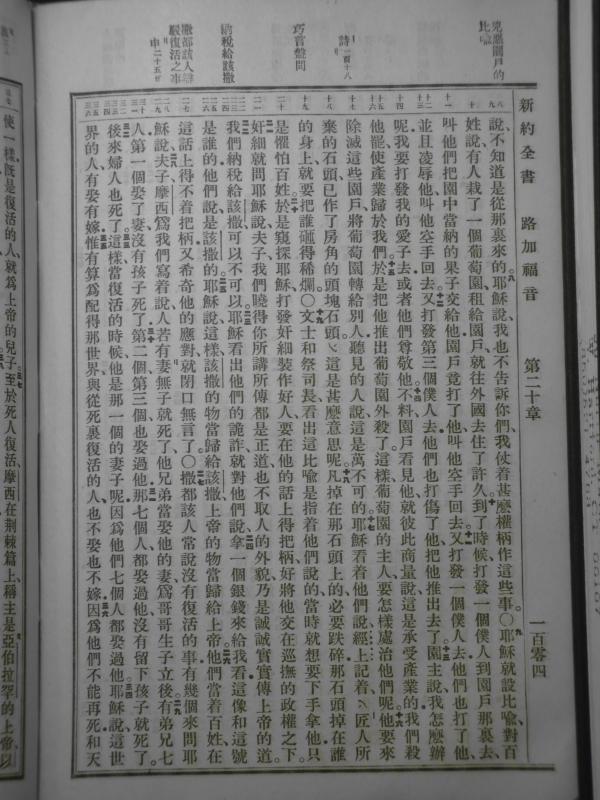 新約全書 路加福音 第二十章 一百零四
兇惡園戶的
比喻
詩一百十八
巧言盤問
納稅給該撒
撒都該人辯
駁復活之事
申二十五
說、不知道是從那裏來的。耶穌說、我也不告訴你們、我仗着甚麼權柄作這些事。〇耶穌就設比喻、對百
姓說、有人栽了一個葡萄園、租給園戶、就往外國去住了許久。到了時候、打發一個僕人到園戶那裏去、
叫他們把園中當納的果子交給他、園戶竟打了他、叫他空手回去。又打發一個僕人去、他們也打了他、
並且凌辱他、叫他空手回去。又打發第三個僕人去、他們也打傷了他、把他推出去了。園主說、我怎麼辦
呢、我要打發我的愛子去、或者他們尊敬他。不料、園戶看見他、就彼此商量說、這是承受產業的、我們殺
他罷、使產業歸於我們。於是把他推出葡萄園外殺了。這樣、葡萄園的主人、要怎樣處治他們呢。他要來
除滅這些園戶、將葡萄園轉給別人。聽見的人說、這是萬不可的。耶穌看着他們說、經上記着、匠人所
棄的石頭、已作了房角的頭塊石頭、這是甚麼意思呢。凡掉在那石頭上的、必要跌碎、那石頭掉在誰
的身上、就要把誰砸得稀爛。〇文士和祭司長、看出這比喻是指着他們說的、當時就想要下手拿他、只
是懼怕百姓。於是窺探耶穌、打發奸細裝作好人、要在他的話上得把柄、好將他交在巡撫的政權之下。
奸細就問耶穌說、夫子、我們曉得你所講所傳都是正道、也不取人的外貌、乃是誠誠實實傳上帝的道。
我們納稅給該撒、可以不可以。耶穌看出他們的詭詐、就對他們說、拿一個銀錢來給我看、這像和這號
是誰的、他們說、是該撒的。耶穌說、這樣、該撒的物當歸給該撒、上帝的物當歸給上帝。他們當着百姓、在
這話上得不着把柄、又希奇他的應對、就閉口無言了。〇撒都該人常說沒有復活的事、有幾個來問耶
穌說、夫子、摩西爲我們寫着說、人若有妻無子就死了、他兄弟當娶他的妻、爲哥哥生子立後。有弟兄七
人、第一個娶了妻、沒有孩子死了。第二個第三個也娶過他、那七個人都娶過他、沒有留下孩子就死了。
後來婦人也死了。這樣、當復活的時候、他是那一個的妻子呢、因爲他們七個人都娶過他。耶穌說、這世
界的人、有娶有嫁。惟有算爲配得那世界、與從死裏復活的人、也不娶也不嫁。因爲他們不能再死、和天
使一樣、既是復活的人、就爲上帝的兒子。至於死人復活、摩西在荊棘篇上、稱主是亞伯拉罕的上帝、以